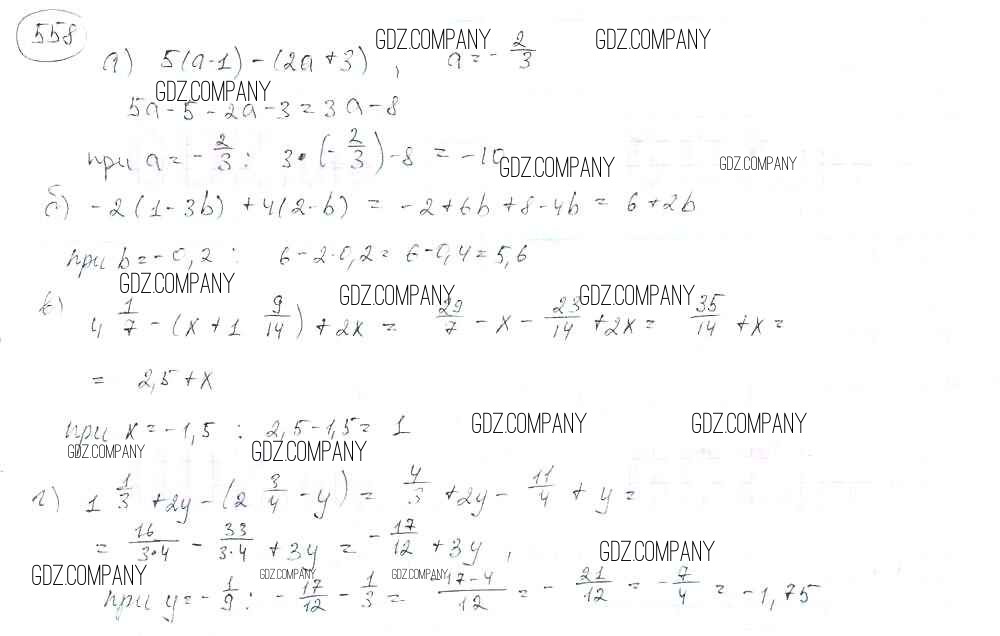 558
GDZ.COMPANY GDZ.COMPANY
а) 5(a-1) - (2a+3), a = - 2/3
GDZ.COMPANY
5a - 5 - 2a - 3 = 3a - 8
при a = - 2/3 : 3 · (- 2/3) - 8 = -10
GDZ.COMPANY GDZ.COMPANY
б) -2(1-3b) + 4(2-b) = -2+6b+8-4b = 6+2b
при b = -0,2 : 6 - 2·0,2 = 6-0,4 = 5,6
GDZ.COMPANY GDZ.COMPANY GDZ.COMPANY
в) 4 1/7 - (x + 1 9/14) + 2x = 29/7 - x - 23/14 + 2x = 35/14 + x =
= 2,5 + x
при x = -1,5 : 2,5 - 1,5 = 1
GDZ.COMPANY GDZ.COMPANY
GDZ.COMPANY GDZ.COMPANY
г) 1 1/3 + 2y - (2 3/4 - y) = 4/3 + 2y - 11/4 + y =
= 16/3·4 - 33/3·4 + 3y = - 17/12 + 3y,
GDZ.COMPANY
GDZ.COMPANY GDZ.COMPANY GDZ.COMPANY
при y = - 1/9 : - 17/12 - 1/3 = -17-4/12 = - 21/12 = - 7/4 = -1,75